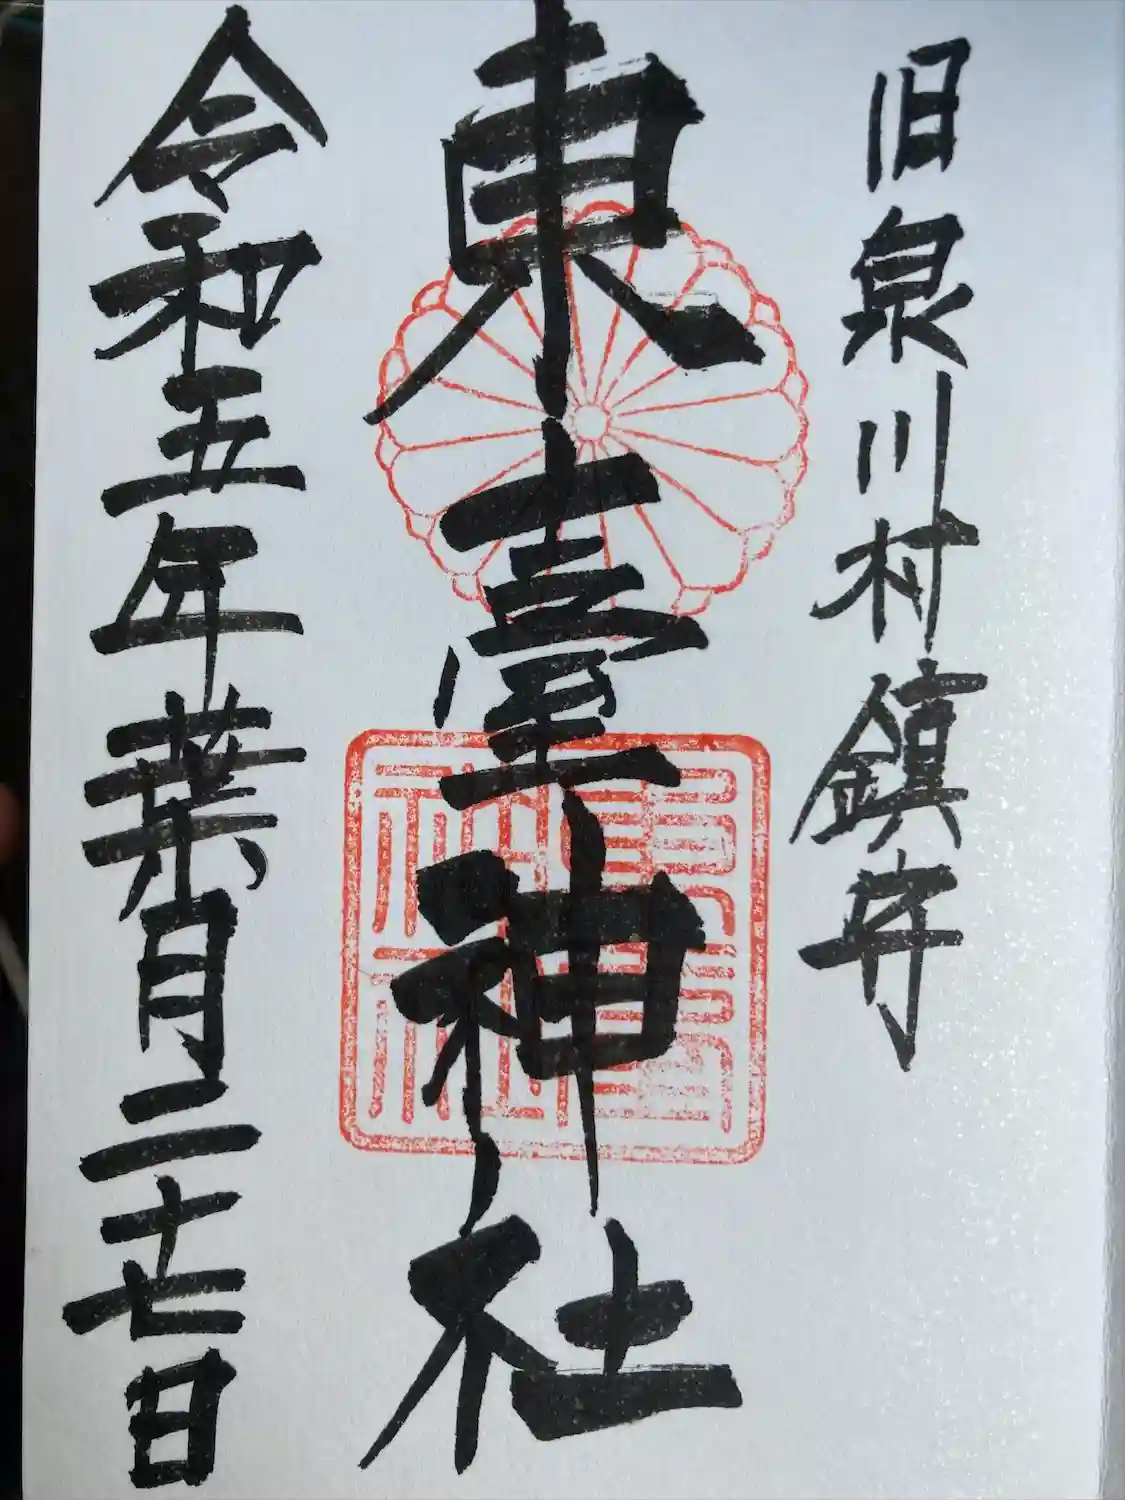 旧泉川村鎮守
東臺神社
令和五年葉月二十七日